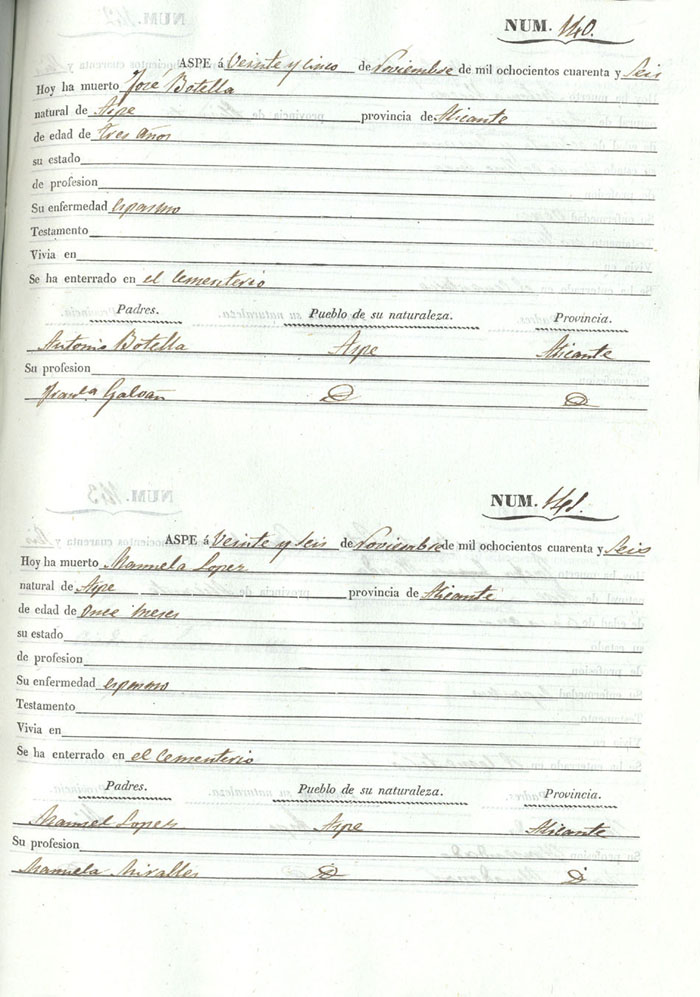 NUM. 140.
ASPE á Veinte y cinco de Noviembre de mil ochocientos cuarenta y Seis
Hoy ha muerto José Botella
natural de Aspe provincia de Alicante
de edad de tres años
su estado
de profesion
Su enfermedad espasmo
Testamento
Vivia en
Se ha enterrado en el Cementerio
Padres. Pueblo de su naturaleza. Provincia.
Antonio Botella Aspe Alicante
Su profesion
Galvañ D D
NUM. 141.
ASPE á Veinte y seis de Noviembre de mil ochocientos cuarenta y Seis
Hoy ha muerto Manuela Lopez
natural de Aspe provincia de Alicante
de edad de once meses
su estado
de profesion
Su enfermedad espasmo
Testamento
Vivia en
Se ha enterrado en el Cementerio
Padres. Pueblo de su naturaleza. Provincia.
Manuel Lopez Aspe Alicante
Su profesion
Manuela Miralles D D